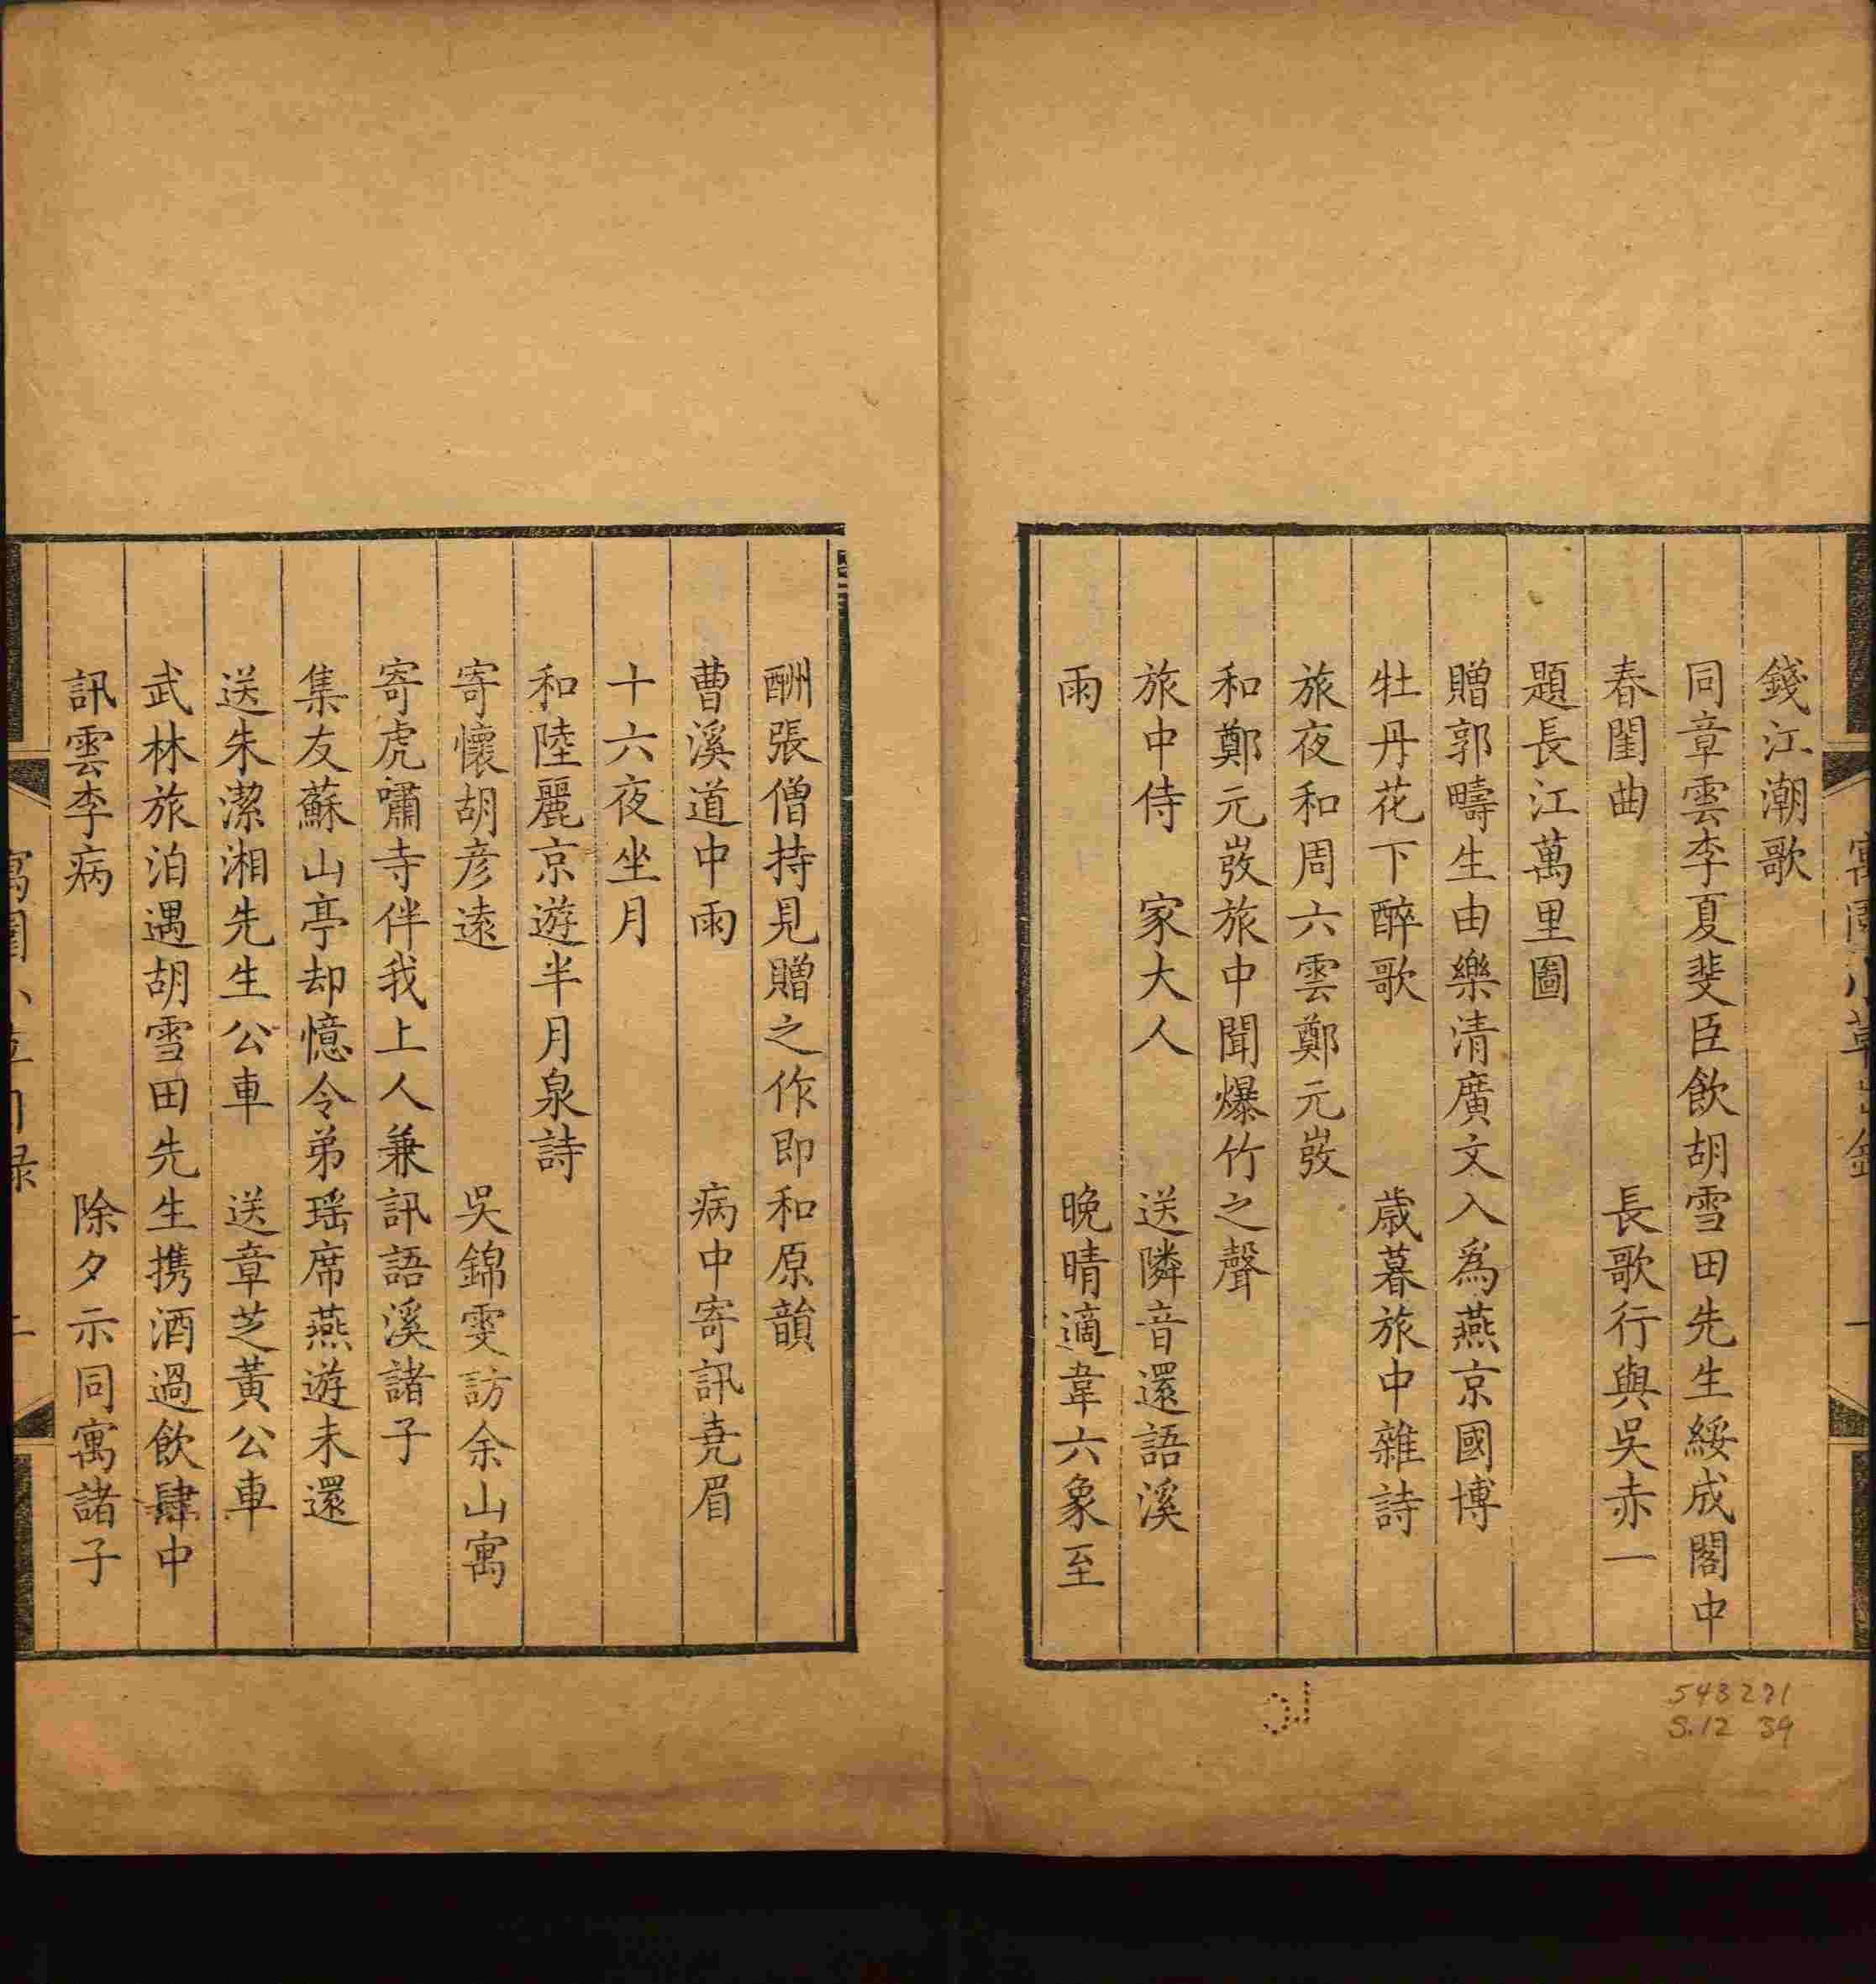 錢江潮歌
同章雲李夏斐臣飲胡雪田先生綏成閣中
春閨曲　長歌行與吳赤一
題長江萬里圖
贈郭疇生由樂清廣文入爲燕京國博
牡丹花下醉歌　歲暮旅中雜詩
旅夜和周六雲鄭元敳
和鄭元敳旅中聞爆竹之聲
旅中侍　家大人　送隣音還語溪
雨　晚晴適韋六象至
酬張僧持見贈之作即和原韻
曹溪道中雨　病中寄訊堯眉
十六夜坐月
和陸麗京遊半月泉詩
寄懷胡彦遠　吳錦雯訪余山寓
寄虎嘯寺伴我上人兼訊語溪諸子
集友蘇山亭却憶令弟瑶席燕遊未還
送朱潔湘先生公車　送章芝黃公車
武林旅泊遇胡雪田先生携酒過飲肆中
訊雲李病　除夕示同寓諸子
543271
S.12 39